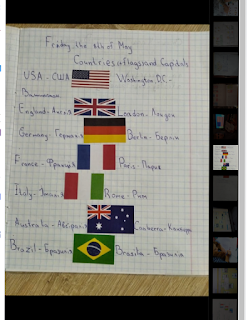 Friday, the 8th of May
Countries, flags and Capitals
USA - США Washington D.C. -
Вашингтон
England - Англия London - Лондон
Germany - Германия Berlin - Берлин
France - Франция Paris - Париж
Italy - Италия Rome - Рим
Australia - Австралия Canberra - Канберра
Brazil - Бразилия Brasilia - Бразилиа